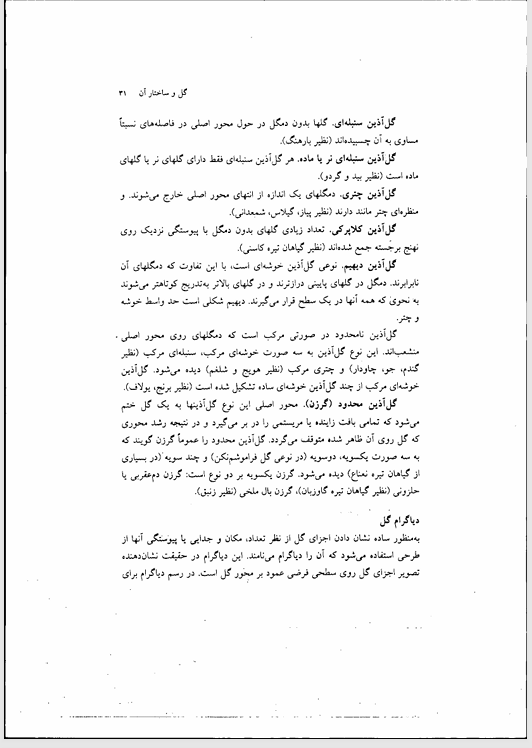 گل و ساختار آن ۳۱
گل‌آذین سنبله‌ای. گلها بدون دمگل در حول محور اصلی در فاصله‌های نسبتاً
مساوی به آن چسبیده‌اند (نظیر بارهنگ).
گل‌آذین سنبله‌ای نر یا ماده. هر گل‌آذین سنبله‌ای فقط دارای گلهای نر یا گلهای
ماده است (نظیر بید و گردو).
گل‌آذین چتری. دمگلهای یک اندازه از انتهای محور اصلی خارج می‌شوند. و
منظره‌ای چتر مانند دارند (نظیر پیاز، گیلاس، شمعدانی).
گل‌آذین کلاپرکی. تعداد زیادی گلهای بدون دمگل با پیوستگی نزدیک روی
نهنج برجسته جمع شده‌اند (نظیر گیاهان تیره کاسنی).
گل‌آذین دیهیم. نوعی گل‌آذین خوشه‌ای است، با این تفاوت که دمگلهای آن
نابرابرند. دمگل در گلهای پایینی درازترند و در گلهای بالاتر به‌تدریج کوتاهتر می‌شوند
به نحوی که همه آنها در یک سطح قرار می‌گیرند. دیهیم شکلی است حد واسط خوشه
و چتر.
گل‌آذین نامحدود در صورتی مرکب است که دمگلهای روی محور اصلی
منشعب‌اند. این نوع گل‌آذین به سه صورت خوشه‌ای مرکب، سنبله‌ای مرکب (نظیر
گندم، جو، چاودار) و چتری مرکب (نظیر هویج و شلغم) دیده می‌شود. گل‌آذین
خوشه‌ای مرکب از چند گل‌آذین خوشه‌ای ساده تشکیل شده است (نظیر برنج، یولاف).
گل‌آذین محدود (گرزن). محور اصلی این نوع گل‌آذینها به یک گل ختم
می‌شود که تمامی بافت زاینده یا مریستمی را در بر می‌گیرد و در نتیجه رشد محوری
که گل روی آن ظاهر شده متوقف می‌گردد. گل‌آذین محدود را عموماً گرزن گویند که
به سه صورت یکسویه، دوسویه (در نوعی گل فراموشم‌نکن) و چند سویه (در بسیاری
از گیاهان تیره نعناع) دیده می‌شود. گرزن یکسویه بر دو نوع است: گرزن دم‌عقربی یا
حلزونی (نظیر گیاهان تیره گاوزبان)، گرزن بال ملخی (نظیر زنبق).
دیاگرام گل
به‌منظور ساده نشان دادن اجزای گل از نظر تعداد، مکان و جدایی یا پیوستگی آنها از
طرحی استفاده می‌شود که آن را دیاگرام می‌نامند. این دیاگرام در حقیقت نشان‌دهنده
تصویر اجزای گل روی سطحی فرضی عمود بر محور گل است. در رسم دیاگرام برای